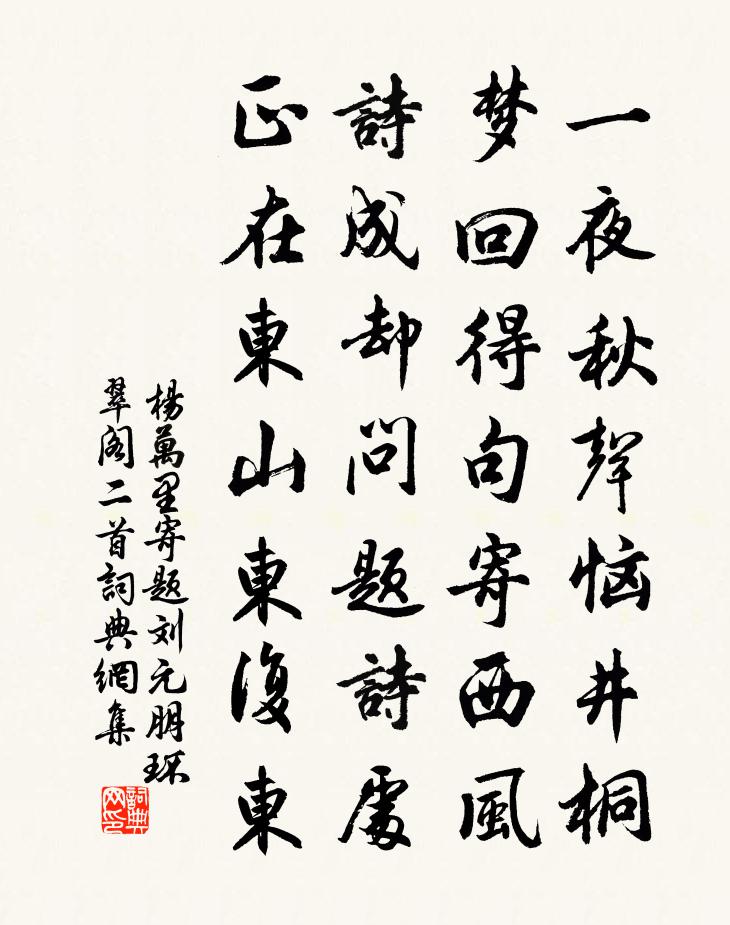 一夜秋聲惱井桐
梦回得句寄西風
詩成却問題詩處
正在東山東復東
楊萬里寄题刘元明环
翠阁二首詞典網集
詞典
网印